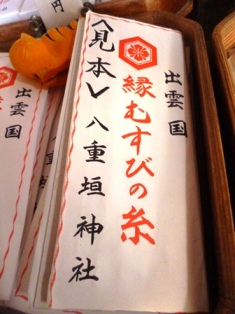 出雲国
縁むすびの糸
<見本>八重垣神社
出雲国
円